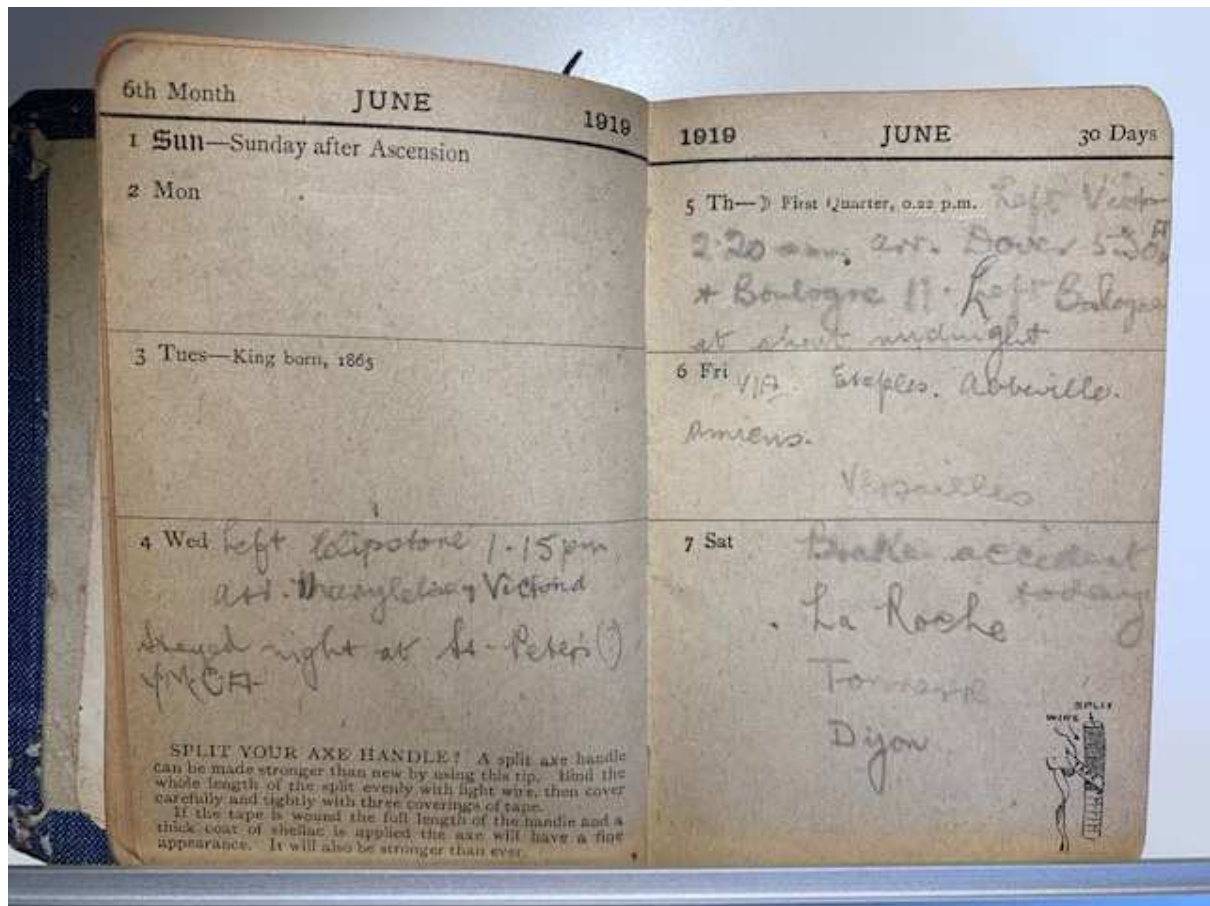 6th Month JUNE 1919
1 Sun—Sunday after Ascension
2 Mon
3 Tues—King born, 1865
4 Wed Left Clipstone 1.15pm
arr. Marylebone Victoria
Stayed night at St. Peter's (?)
YMCA
SPLIT YOUR AXE HANDLE? A split axe handle
can be made stronger than new by using this tip. Bind the
whole length of the split evenly with light wire, then cover
carefully and tightly with three coverings of tape.
If the tape is wound the full length of the handle and a
thick coat of shellac is applied the axe will have a fine
appearance. It will also be stronger than ever.
1919 JUNE 30 Days
5 Th—☽ First Quarter, 0.22 p.m. Left
arr. Dover
+ Boulogne 11. Left
at about midnight
6 Fri VIA. Etaples. Abbeville.
Amiens.
Versailles
7 Sat Brake accident
today
La Roche
Tonnerre
Dijon
WIRE SPLIT